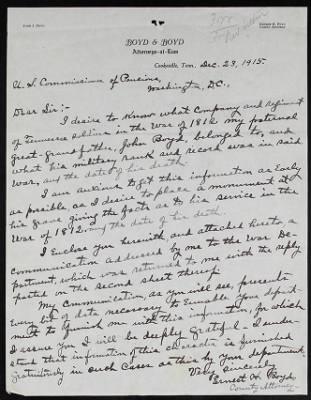 BOYD & BOYD
Attorneys-at-Law
Cookeville, Tenn., Dec. 23, 1915.
U. S. Commissioner of Pensions,
Washington, D.C.,
Dear Sir:-
I desire to know what Company and regiment
of Tennessee Militia in the War of 1812 my paternal
great-grandfather, John Boyd, belonged to, and
what his military rank and record was in said
War, and the date of his death.
I am anxious to get this information as early
as possible, as I desire to place a monument at
his grave giving the facts as to his service in the
War of 1812 and the date of his death.
I enclose you herewith, and attached hereto, a
communication addressed by me to the War De-
partment, which was returned to me with the reply
pasted on the second sheet thereof.
My communication, as you will see, presents
every bit of data necessary to enable your depart-
ment to furnish me with this information, for which
I assure you I will be deeply grateful - I under-
stand that information of this character is furnished
gratuitously in such cases as this by your department.
Very sincerely,
Ernest H. Boyd
County Attorney